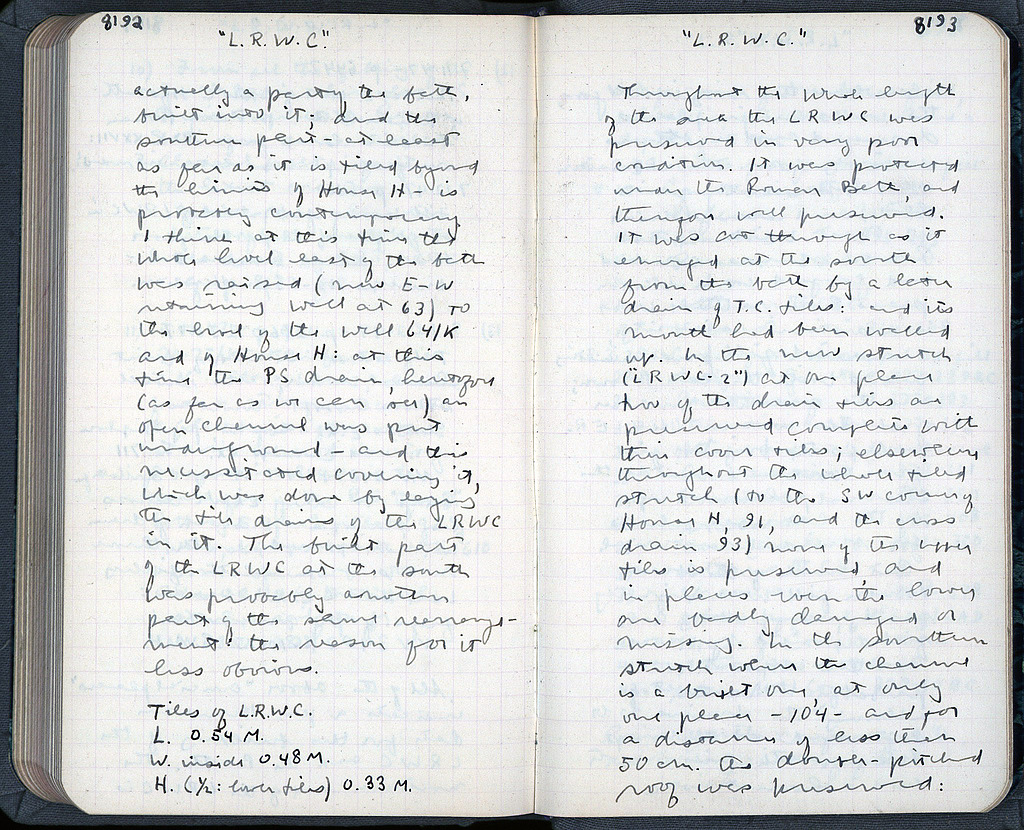 8192
"L.R.W.C."
actually a part of the bath,
built into it; and the
southern part at least
as far as it is tiled beyond
the limits of House H - is
probably contemporary.
I think at this time the
whole level east of the bath
was raised (new E-W
retaining wall at 63) to
the level of the wall 64/K
and of House H: at this
time the PS drain heretofore
(as far as we can see) an
open channel was put
underground - and this
necessitated covering it,
which was done by laying
the tile drains of the LRWC
in it. The built part
of the LRWC at the south
was probably another
part of the same rearrange-
ment: the reason for it
less obvious.
Tiles of L.R.W.C.
L. 0.54 M.
W. inside 0.48 M.
H. (1/2: lower tiles) 0.33 M.
8193
"L.R.W.C."
Throughout the whole length
of the area the LRWC was
preserved in very poor
condition. It was protected
under the Roman Bath, and
therefore well preserved.
It was cut through as it
emerged at the south
from the bath by a later
drain of T.C. tiles: and its
mouth had been walled
up. In the new stretch
("LRWC-2") at one place
two of the drain tiles are
preserved complete with
their cover tiles; elsewhere
throughout the whole tiled
stretch (to the SW corner of
House H, 91, and the cross
drain 93) none of the upper
tiles is preserved, and
in places even the lower
are badly damaged or
missing. In the southern
stretch where the channel
is a built one, at only
one place - 104 - and for
a distance of less than
50 cm. the double-pitched
roof was preserved: